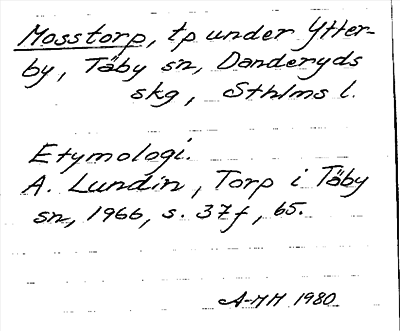 Mosstorp, tp under Ytter-
by, Täby sn, Danderyds
skg, Sthlms l.
Etymologi.
A. Lundin, Torp i Täby
sn, 1966, s. 37f, 65.
A-MH 1980